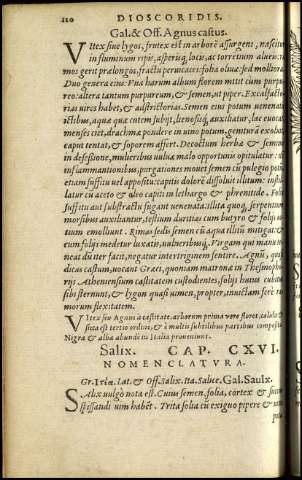 110 DIOSCORIDIS.
Gal. & Off. Agnus castus.
Vitex siue lygos, frutex est in arborē assurgens, nascitur
in fluminum ripis, asperisq́; locis, ac torrētium alueis: ra
mos gerit prælongos, fractu peruicaces: folia oliuæ: sed molliora
Duo genera eius. Vna harum album florem mittit cum purpu
reo: altera tantum purpureum, & semen, ut piper. Excalfacto
rias uires habet, & adstrictorias. Semen eius potum uenenatis
ictibus, aquæ quæ cutem subijt, lienosisq́; auxiliatur, lac euocat
menses ciet, drachma pondere in uino potum, genitura exolui
caput tentat, & soporem affert. Decoctum herbæ & seminis
in desessione, mulieribus uuluæ malo opportunis opitulatur: &
inflammantionibus, purgationes mouet semen cū pulegio potū
etiam suffitu uel appositu: capitis dolorē dissoluit
latur cū aceto & oleo capiti in lethargo & phrenitide. Folia
suffitu aut substractu fugant uenenata: illita quoq́; serpentum
morsibus auxiliantur, testium duritias cum butyro & folijs ui
tium emolliunt. Rimas sedis semen cū aqua illitū mitigat: &
cum folijs medetur luxatis, uulneribusq́;. Virgam qui manu te
neat dū iter facit, negatur intertriginem sentire. Agnū, quasi
dicas castum, uocant Græci, quoniam matronæ in Thesmopho
rijs Atheniensium castitatem custodientes, folijs huius cubitus
sibi sternunt, & lygon quasi uimen, propter inuictam ferè ra
morum flexitatem.
Vitex siue Agnus à castitate, arborum prima uere floret, calida &
sicca est tertio ordine, & è multis subtilibus partibus composita
Nigra & alba abunde in Italia proueniunt.
Salix. CAP. CXVI.
NOMENCLATVRA.
Gr. Iτέα. Lat. & Off. Salix. Ita. Salice. Gal. Saulx.
Salix uulgò nota est. Cuius semen, folia, cortex & succus
spissandi uim habēt. Trita folia cū exiguo pipere & uino
pota